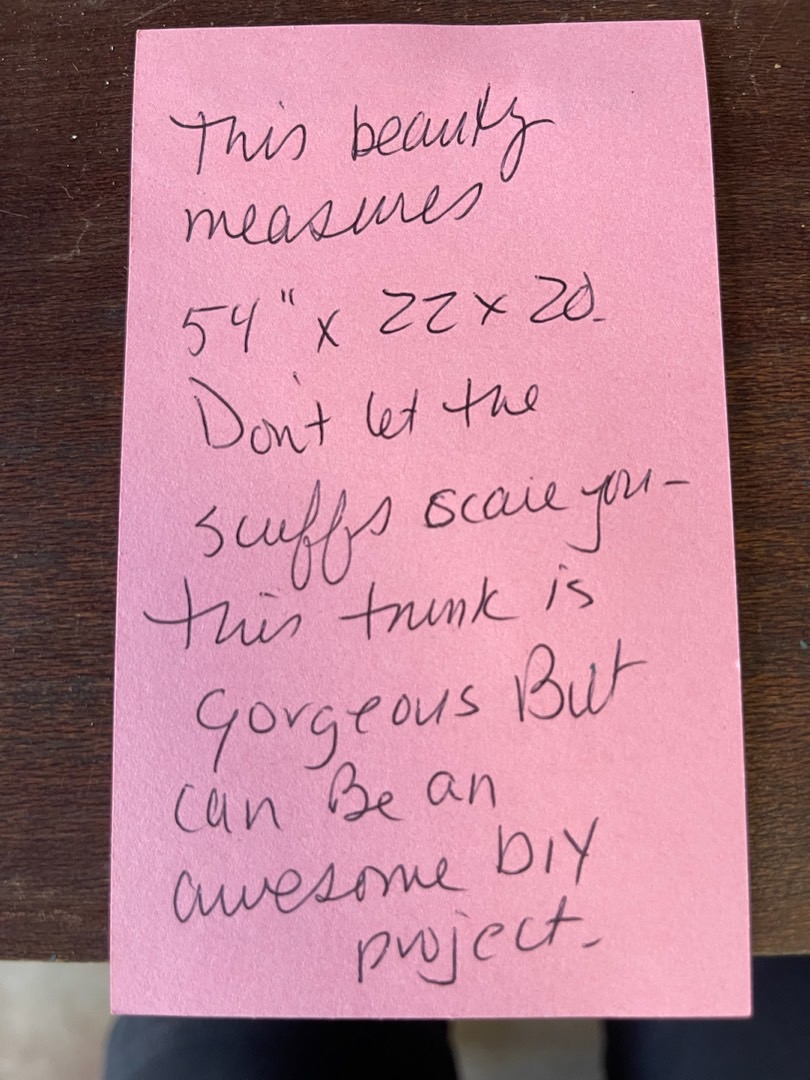 This beauty
measures
54" x 22 x 20.
Don't let the
scuffs scare you -
this trunk is
gorgeous But
can Be an
awesome DIY
project.